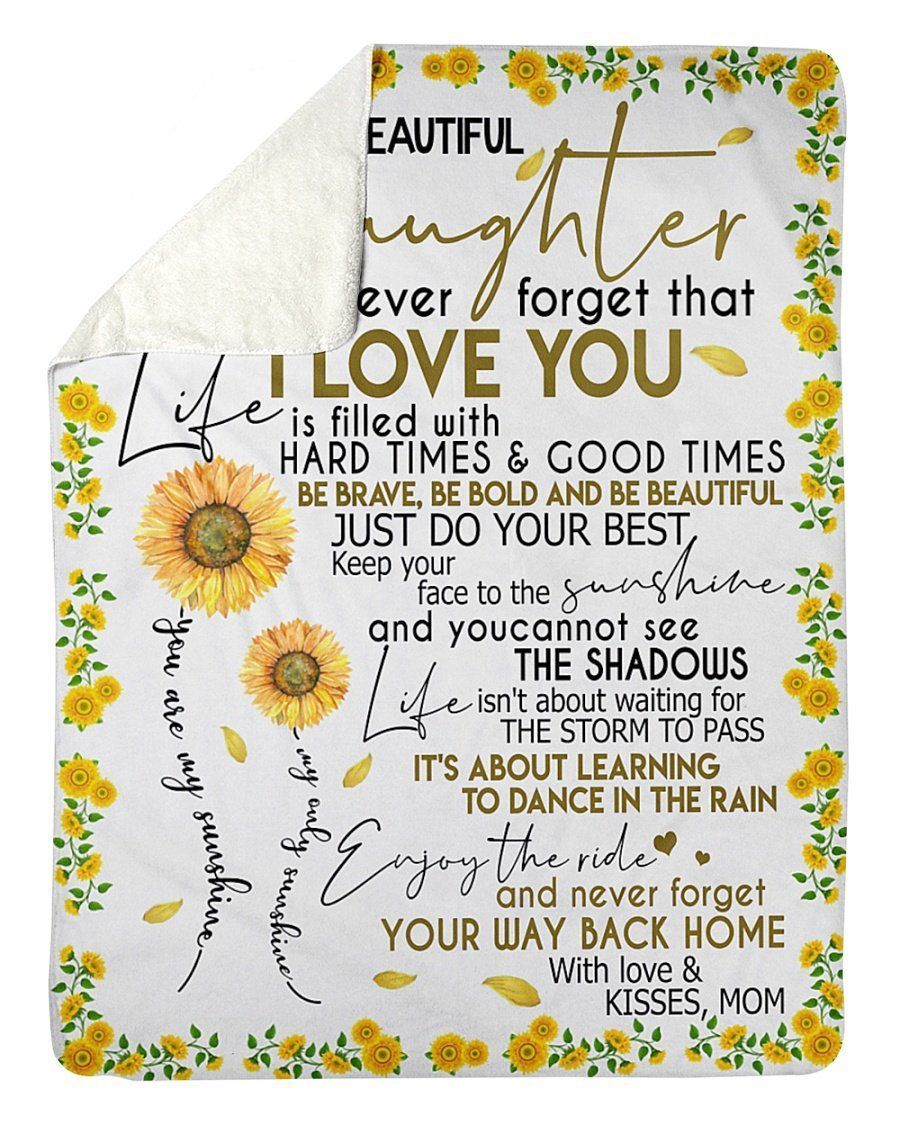 EAUTIFUL
aughter
ever forget that
I LOVE YOU
Life is filled with
HARD TIMES & GOOD TIMES
BE BRAVE, BE BOLD AND BE BEAUTIFUL
JUST DO YOUR BEST
Keep your
face to the sunshine
and youcannot see
THE SHADOWS
Life isn't about waiting for
THE STORM TO PASS
IT'S ABOUT LEARNING
TO DANCE IN THE RAIN
Enjoy the ride
and never forget
YOUR WAY BACK HOME
With love &
KISSES, MOM
you are my sunshine
my only sunshine